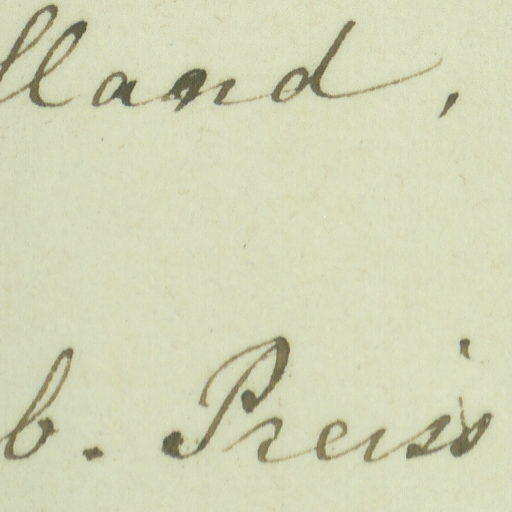 lland,
b. Preiss